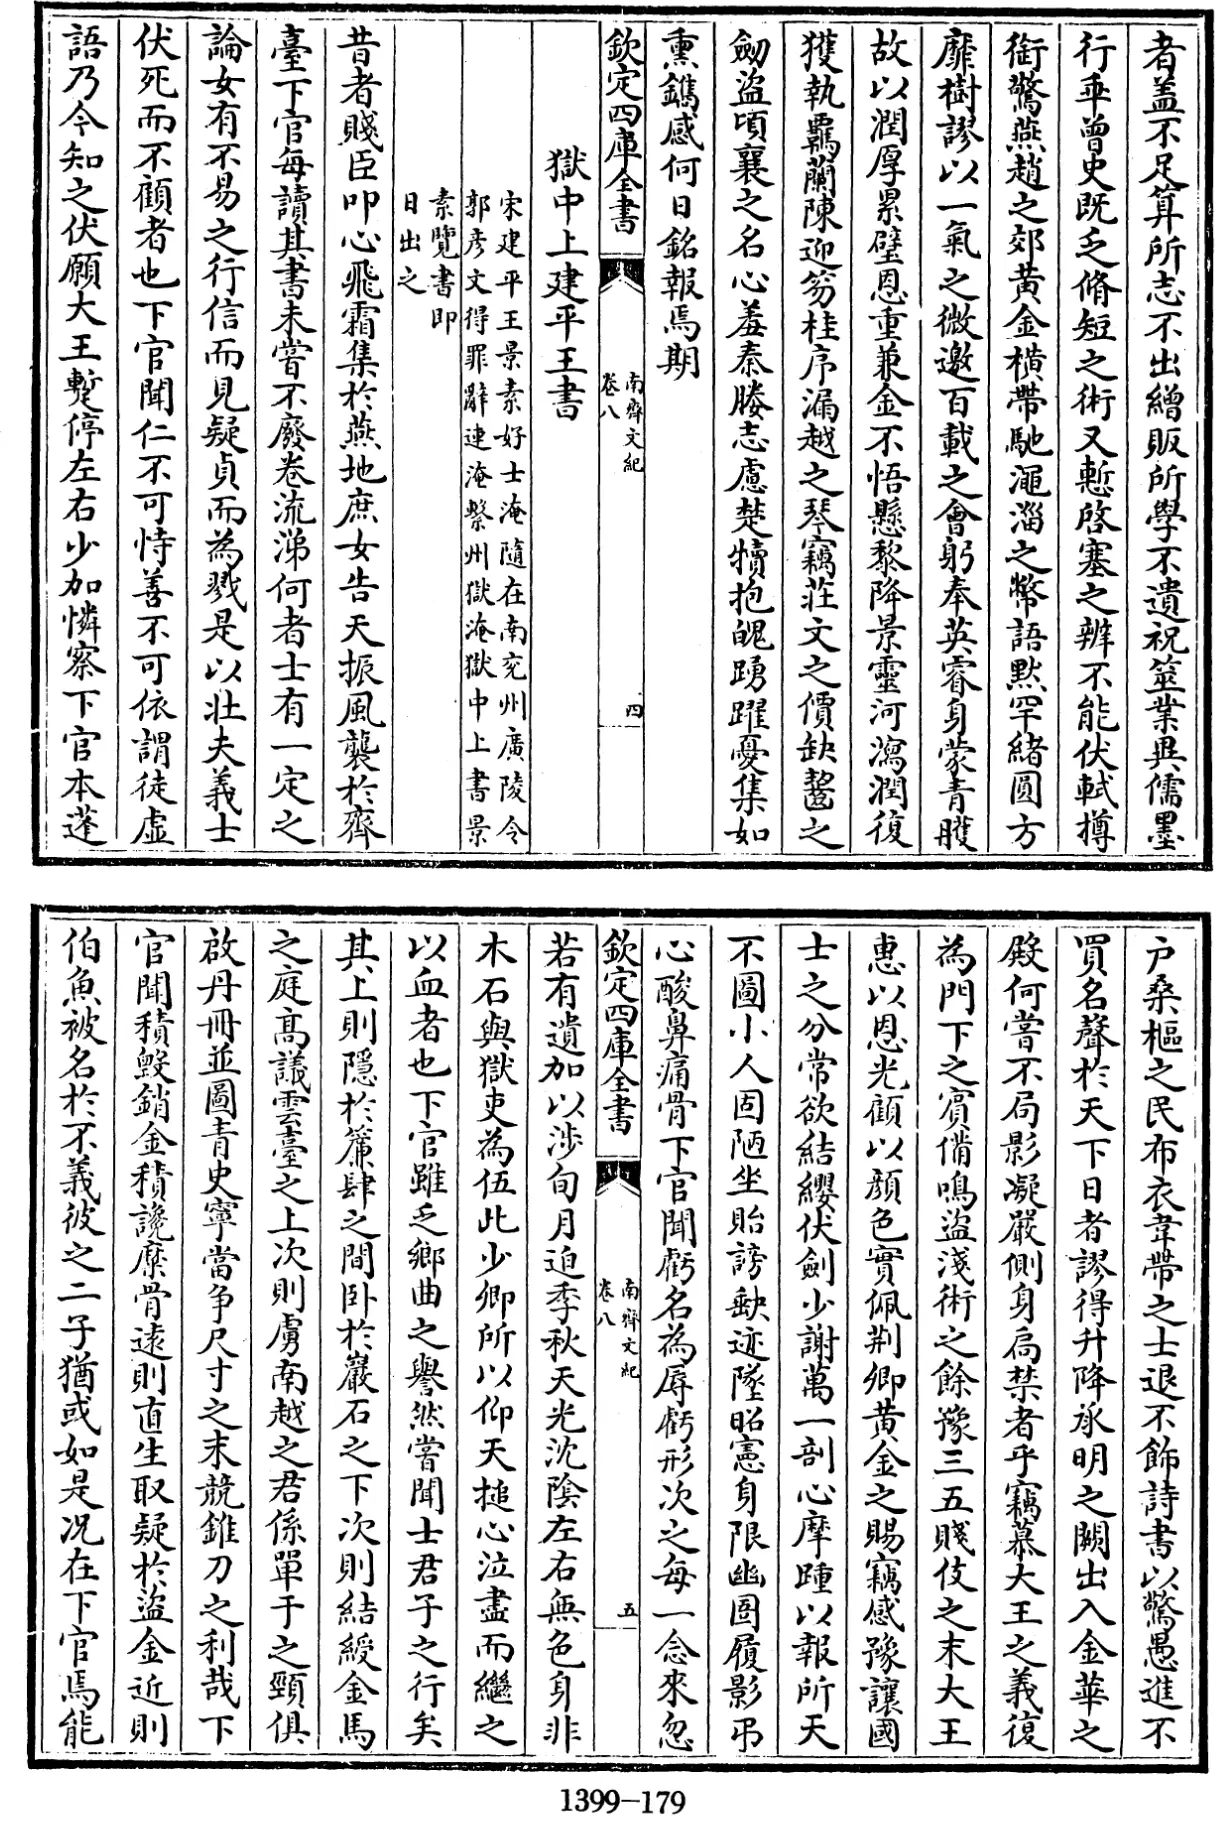 者盖不足算所志不出繒販所學不遺祝筮業異儒墨
行乖曾史既乏脩短之術又慙啓塞之辨不能伏軾撙
銜驚燕趙之郊黄金横帶馳澠淄之幣語黙罕緒圓方
靡樹謬以一氣之微邀百載之會躬奉英睿身蒙青雘
故以潤厚累璧恩重兼金不悟懸黎降景靈河瀉潤復
獲執羈蘭陳迎笏桂序漏越之琴竊莊文之價缺齾之
劒盜頃襄之名心羞秦媵志慮楚犢抱媿踴躍憂集如
熏鐫感何日銘報焉期
欽定四庫全書
南齊文紀
卷八
四
獄中上建平王書
宋建平王景素好士淹隨在南兖州廣陵令
郭彦文得罪辭連淹繫州獄淹獄中上書景
素覽書即
日出之
昔者賤臣叩心飛霜集於燕地庶女告天振風襲於齊
臺下官每讀其書未嘗不廢卷流涕何者士有一定之
論女有不易之行信而見疑貞而為戮是以壯夫義士
伏死而不顧者也下官聞仁不可恃善不可依謂徒虛
語乃今知之伏願大王蹔停左右少加憐察下官本蓬
户桑樞之民布衣韋帶之士退不飾詩書以驚愚進不
買名聲於天下日者謬得升降承明之闕出入金華之
殿何嘗不局影凝嚴側身扃禁者乎竊慕大王之義復
為門下之賔備鳴盜淺術之餘豫三五賤伎之末大王
惠以恩光顧以顔色實佩荆卿黄金之賜竊感豫讓國
士之分常欲結纓伏劍少謝萬一剖心摩踵以報所天
不圖小人固陋坐貽謗缺迹墜昭憲身限幽圄履影弔
心酸鼻痛骨下官聞虧名為辱虧形次之每一念來忽
欽定四庫全書
南齊文紀
卷八
五
若有遺加以涉旬月迫季秋天光沈陰左右無色身非
木石與獄吏為伍此少卿所以仰天搥心泣盡而繼之
以血者也下官雖乏鄉曲之譽然嘗聞士君子之行矣
其上則隱於簾肆之間卧於巖石之下次則結綬金馬
之庭髙議雲臺之上次則虜南越之君係單于之頸俱
啟丹冊並圖青史寧當争尺寸之末競錐刀之利哉下
官聞積毀銷金積讒糜骨逺則直生取疑於盜金近則
伯魚被名於不義彼之二子猶或如是况在下官焉能
1399-179